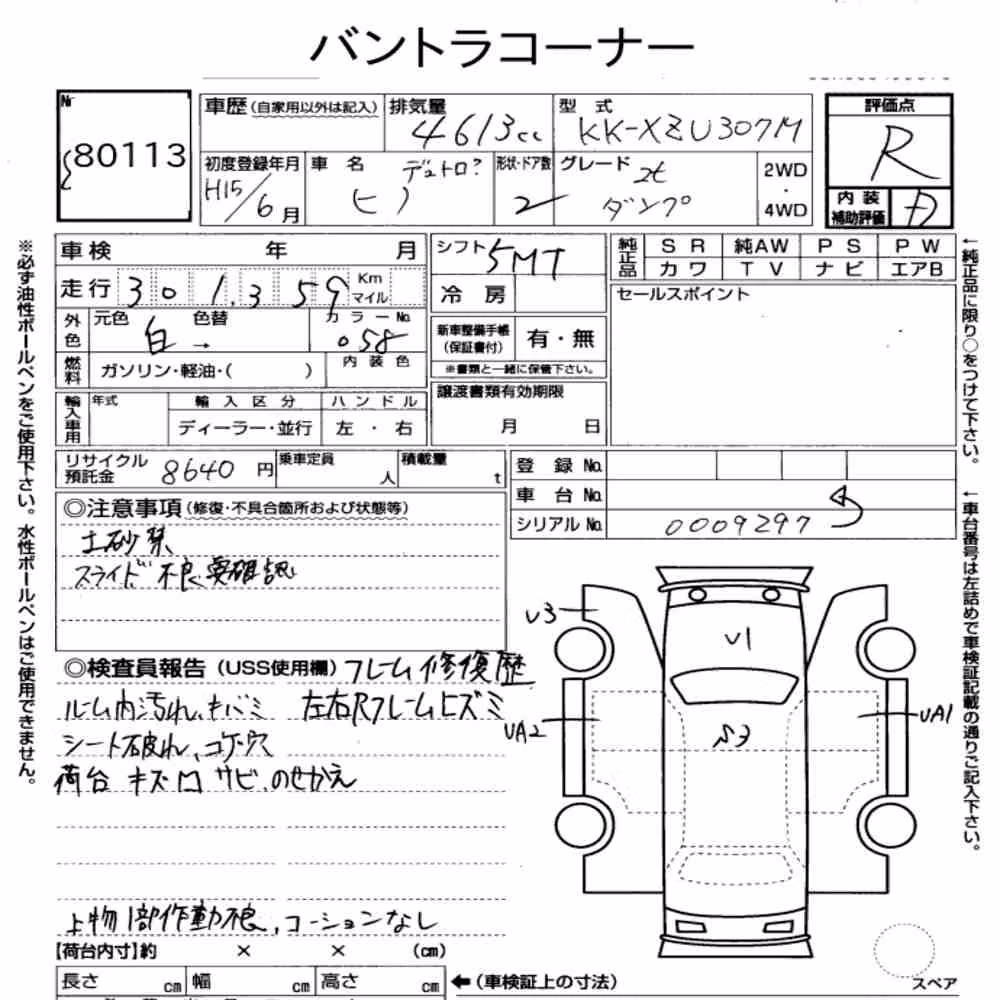 バントラコーナー
№ 80113
車歴(自家用以外は記入) 排気量 4613cc 型式 KK-XZU307M 評価点 R
初度登録年月 H15/6月 車名 デュトロ? ヒノ 形状・ドア数 2 グレード 2t ダンプ 2WD・4WD 内装補助評価 D
車検 年 月 シフト 5MT 純正品 SR 純AW PS PW
カワ TV ナビ エアB
走行 301,359 Km マイル 冷房 セールスポイント
外色 元色 白 → 色替 カラーNo. 058
新車整備手帳(保証書付) 有・無
燃料 ガソリン・軽油・( ) 内装色 ※書類と一緒に保管下さい。
輸入車用 年式 輸入区分 ハンドル 譲渡書類有効期限
ディーラー・並行 左・右 月 日
リサイクル預託金 8640円 乗車定員 人 積載量 t 登録No.
車台No.
シリアルNo. 0009297
◎注意事項(修復・不具合箇所および状態等)
土砂禁
スライド不良 要確認
◎検査員報告(USS使用欄) フレーム修復歴
ルーム内汚れ、キバミ 左右Rフレームヒズミ
シート破れ、コゲ穴
荷台 キズ凹 サビ、のせかえ
上物1部作動不良、コーションなし
【荷台内寸】約 × × (cm)
長さ cm 幅 cm 高さ cm ←(車検証上の寸法)
U3
U1
UA2
S3
UA1
スペア
※必ず油性ボールペンをご使用下さい。水性ボールペンはご使用できません。
←純正品に限り○をつけて下さい。
←車台番号は左詰めで車検証記載の通りご記入下さい。